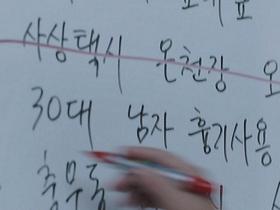 사상택시 온천장
30대 남자 흉기사용
충무동